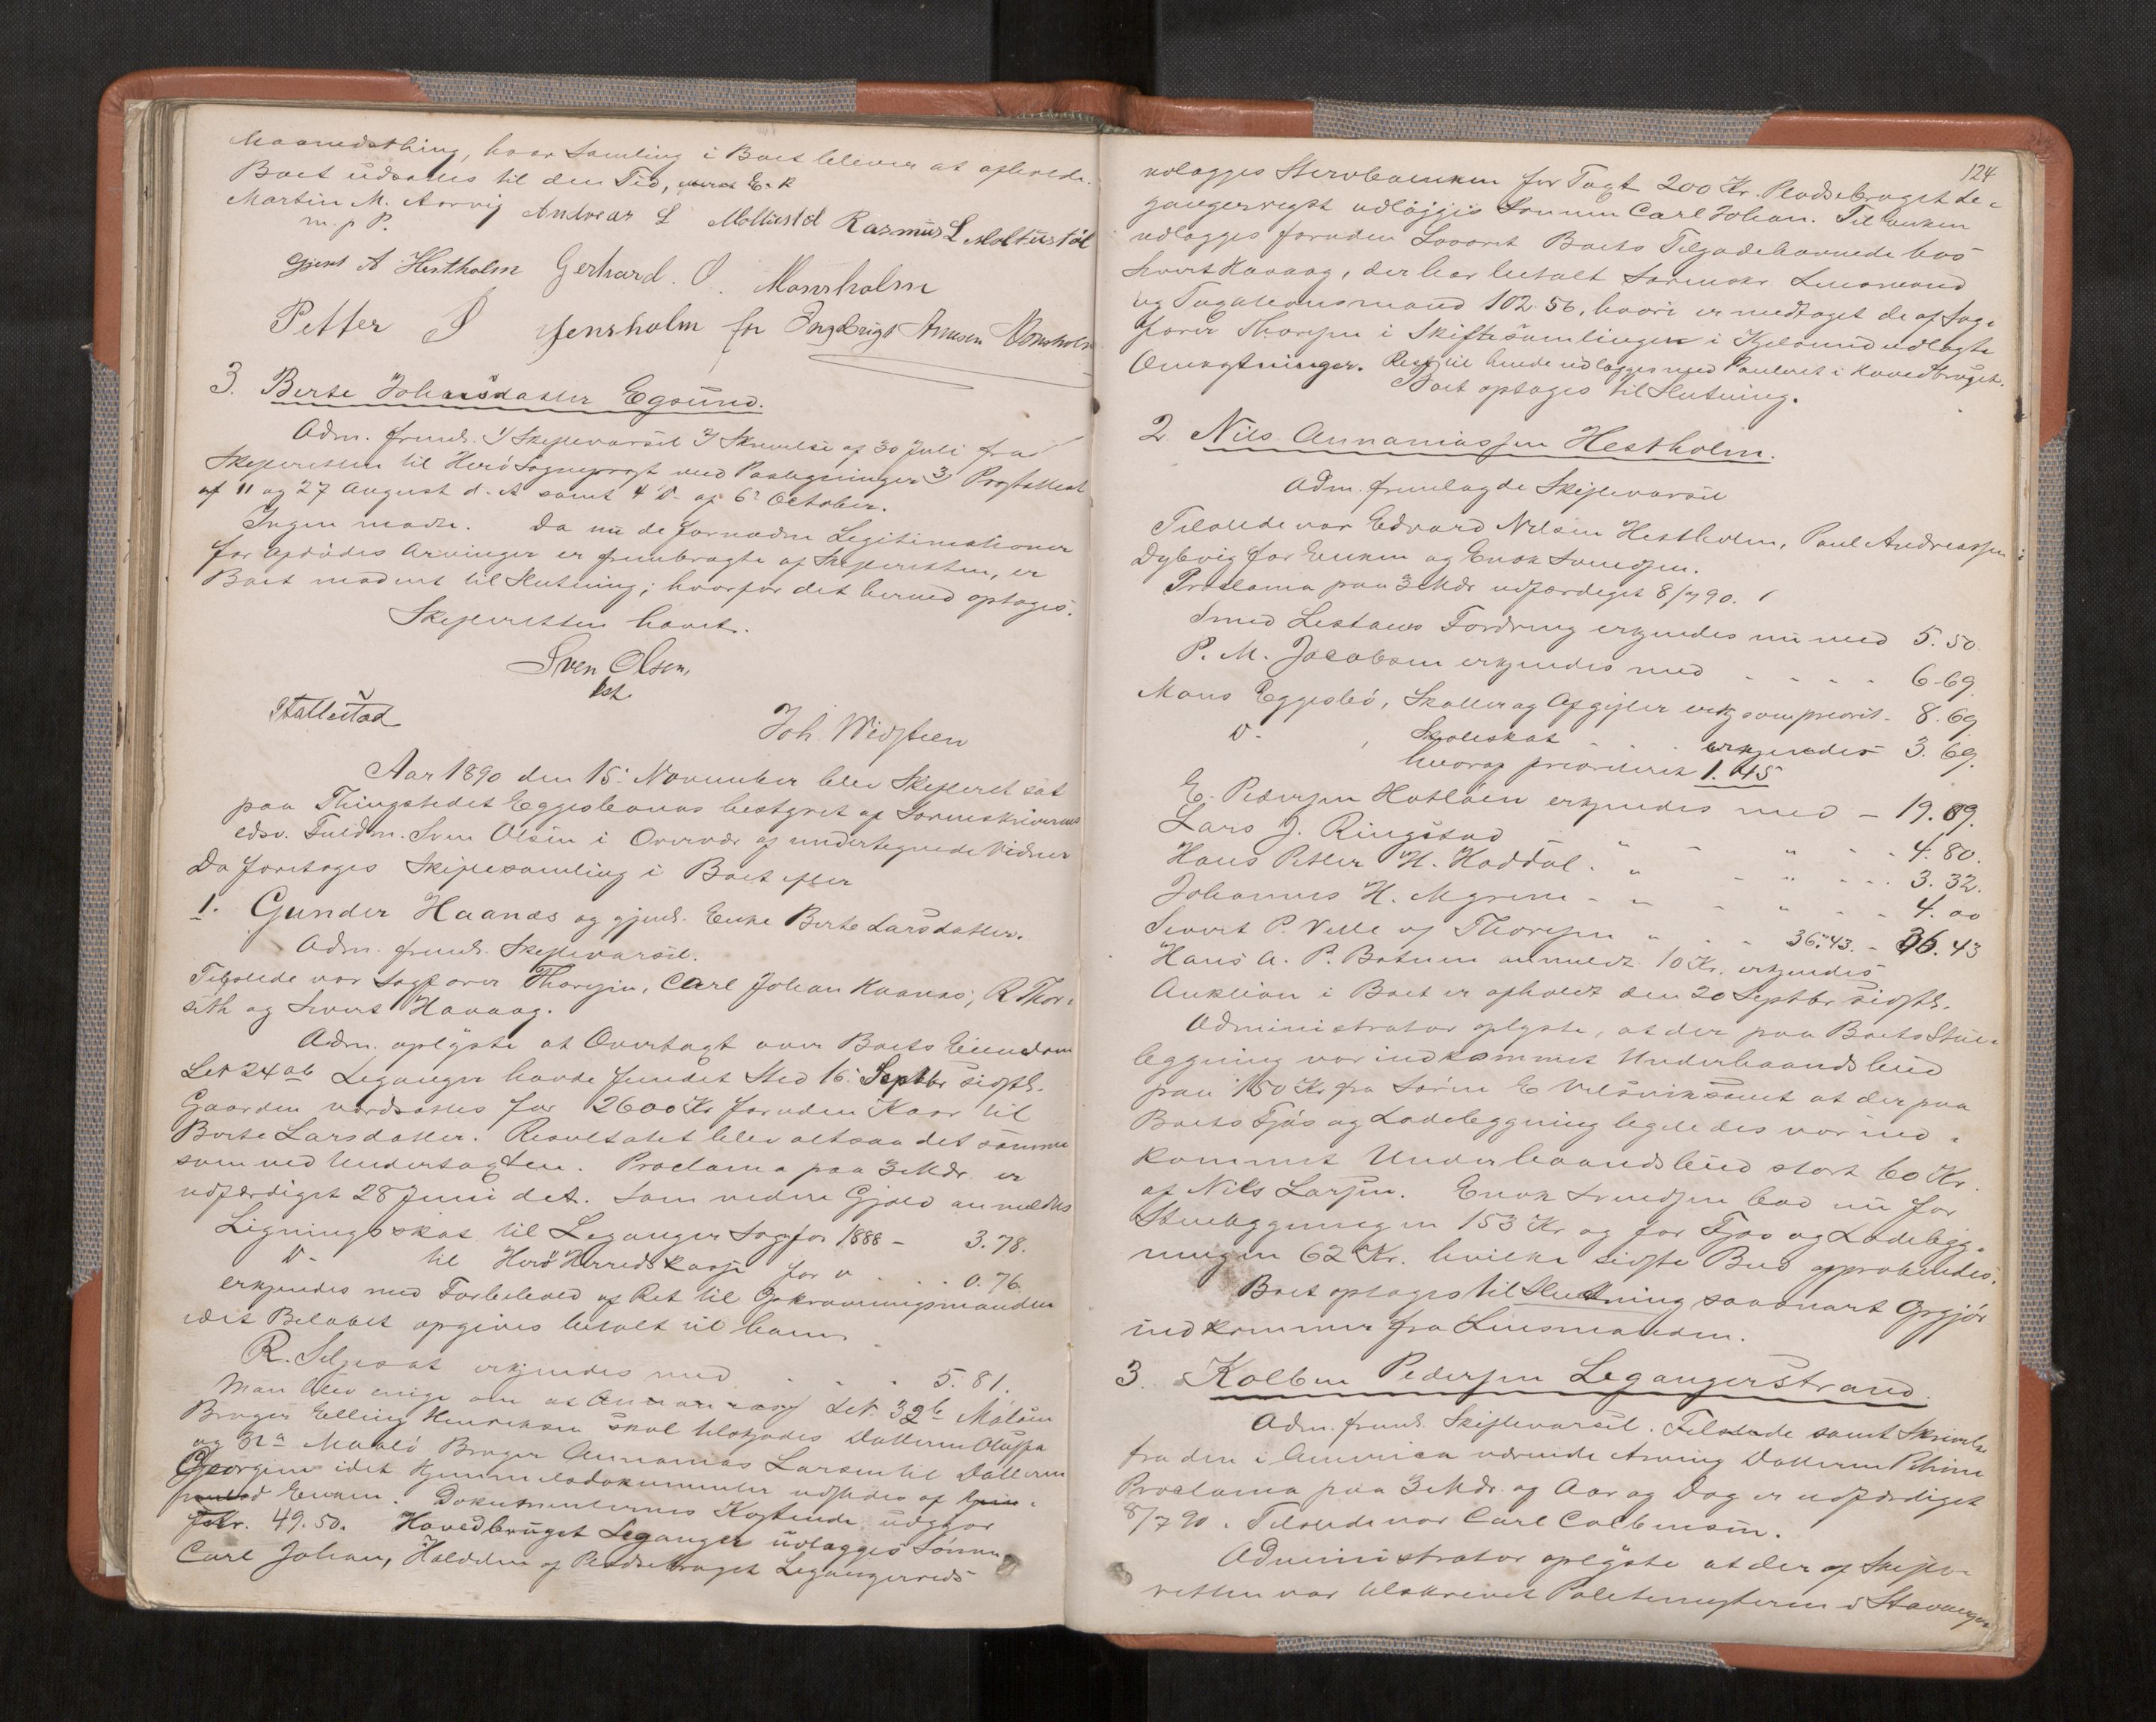 Maanedsthing, hvor Samling i Boet bliver at afholde.
Boet udsattes til den Tid,
Martin M. Aarvig Andreas L Moltustöl Rasmus L Moltustöl
m. p P.
A Hestholm Gerhard. O. Monsholm
Petter J Jensholm for Ingebrigt Arnesen Monsholm
3. Berte Johansdatter Egsund.
Adm. freml. 1) Skiftevarsel 2) Skrivelse af 30 Juli fra
Skifteretten til Herö Sogneprest med Paategninger 3) Prestattest
af 11 og 27 August d. A samt 4 D- af 6 October.
Ingen mødte. Da nu de fornødne Legitimationer
for Afdødes Arvinger er frembragte af Skifteretten, er
Boet modent til Slutning; hvorfor det herved optages.
Skifteretten hævet.
Sven Olsen,
kst.
Joh. Widsteen
Aar 1890 den 15. November blev Skifteret sat
paa Thingstedet Eggesbønes bestyret af Sorenskriverens
edsv. Fuldm. Sven Olsen i Overvær af undertegnede Vidner
Da foretoges Skiftesamling i Boet efter
1. Gunder Haanæs og gjenl. Enke Berte Larsdatter.
Adm. freml. Skiftevarsel.
Tilstede var Sagfører Thoresen, Carl Johan Haanæs, R Thor-
seth og Sivert Havaag.
Adm. oplyste at Overtagt over Boets Eiendom
Lnr 24 ab Leganger havde fundet Sted 16. Septbr sidstl.
Gaarden værdsattes for 2600 Kr foruden Kaar til
Berte Larsdatter. Resultatet blev altsaa det samme
som ved Undertagten. Proclama paa 3 Mdr. er
udfærdiget 28 Juni d. A. Som videre Gjæld anmeldtes
Ligningsskat til Leganger Sogn for 1888 - 3.78.
D- til Herö Herredskasse for D . . . 0.76.
erkjendes med Forbehold af Ret til Opkrævningsmanden
idet Beløbet opgives betalt til ham.
R. erkjendes med . . . . 5.81.
Man blev enige om at Lnr. 32b
Bruger Elling Henriksen skal tilskjødes Datteren
og 32a Bruger Annanias Larsen til Datteren
Georgine idet Hjemmelsdokumenter udstedes af
Enken. Dokumenternes Kostende udgjør
Kr. 49.50. Hovedbruget Leganger udlægges Sønnen
Carl Johan, Halvdelen af Pladsebruget
124
udlægges Stervboenken for Tagt 200 Kr. Pladsebruget
udlægges Sønnen Carl Johan. Til Enken
udlægges foruden Løsøret Boets Tilgodehavende hos
Sivert Havaag, der har betalt Lensmand
og 102.56, hvori er medtaget de af Sag-
fører Thoresen i Skiftesamlingen i udlagte
Omkostninger. Rest til hende udlægges med Panteret i Hovedbruget.
Boet optages til Slutning.
2. Nils Annaniassen Hestholm.
Adm. fremlagde Skiftevarsel
Tilstede var Edvard Nilsen Hestholm, Paul Andreassen
Dybvig for Enken og Enok Svendsen.
Proclama paa 3 Mdr udfærdiget 8/7 90.
Smed Fordring erkjendes nu med 5.50.
P. M. Jacobsen erkjendes med - - - - 6.69.
Mons Eggesbö, Skatter og Afgifter erkj som priorit - 8.69
D- , Skoleskat . . . erkjendes 3.69.
hvoraf prioriteret 1.45
E. Pedersen Hatløen erkjendes med - 19.09.
Lars J. Ringstad - " - " - - 4.80.
Hans Petter H. Haddal . " - " - - . 3.32.
Johannes H. Myrene - " - " - - 4.00
Sivert P. Velle v/ Thoresen " . - 36.43. - 36.43
Hans A. P. Botnen anmeldt 10 Kr. erkjendes
Auktion i Boet er afholdt den 20 Septbr sidstl.
Administrator oplyste, at der paa Boets Stue-
bygning var indkommet Underhaandsbud
paa 150 Kr fra Sören E samt at der paa
Boets Fjøs og Ladebygning ligeledes var ind-
kommet Underhaandsbud stort 60 Kr.
af Nils Larsen. Enok Svendsen bød nu for
Stuebygningen 153 Kr og for Fjøs og Ladebyg-
ningen 62 Kr. hvilke sidste Bud approberedes.
Boet optages til Slutning saasnart Opgjør
indkommer fra Lensmanden.
3. Kolben Pedersen Legangerstrand.
Adm. freml. Skiftevarsel. Tilstede samt Skrivelse
fra den i America værende Arving Datteren
Proclama paa 3 Mdr. og Aar og Dag er udfærdiget
8/7 90. Tilstede var Carl Colbensen.
Administrator oplyste at der af Skifte-
retten var tilskrevet Politimesteren i Stavanger